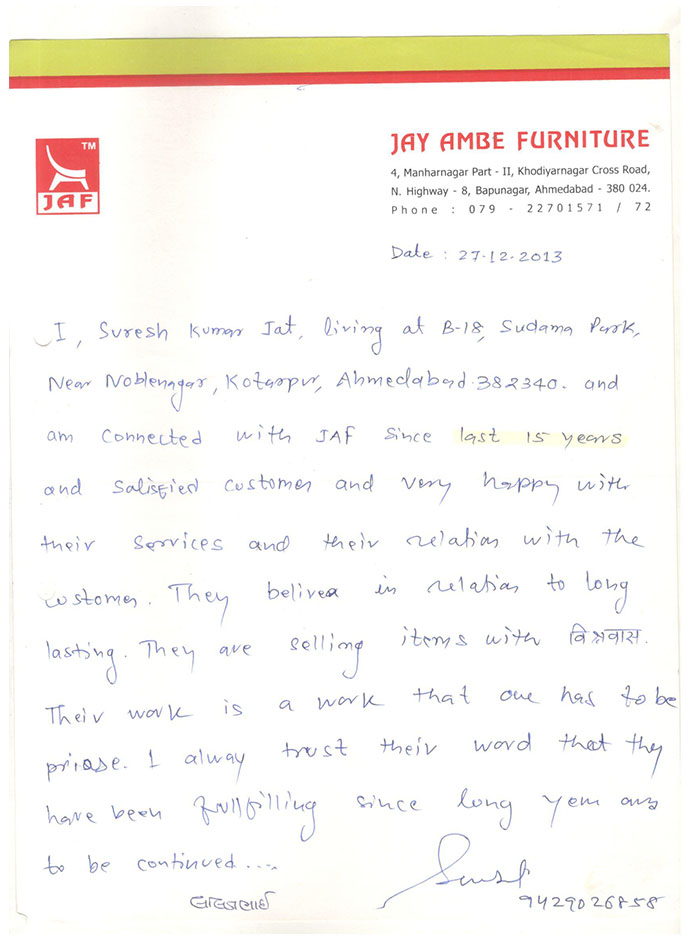 TM
JAF
JAY AMBE FURNITURE
4, Manharnagar Part - II, Khodiyarnagar Cross Road,
N. Highway - 8, Bapunagar, Ahmedabad - 380 024.
Phone : 079 - 22701571 / 72
Date : 27.12.2013
I, Suresh Kumar Jat, living at B-18, Sudama Park,
Near Noblenagar, Kotarpur, Ahmedabad.382340. and
am connected with JAF since last 15 years
and Satisfied customer and very happy with
their services and their relation with the
customer. They belives in relation to long
lasting. They are selling items with विश्रवास.
Their work is a work that one has to be
priase. I alway trust their word that they
have been fullfilling since long
to be continued....
9429026858